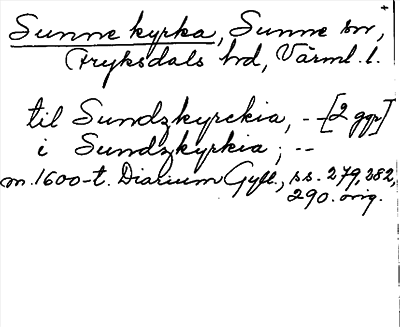 Sunne kyrka, Sunne sn,
Fryksdals hd, Värml. l.
til Sundzkyrckia, -- [2 ggr]
i Sundzkyrkia; --
m. 1600-t. Diarium Gyll., ss. 279, 282,
290. orig.